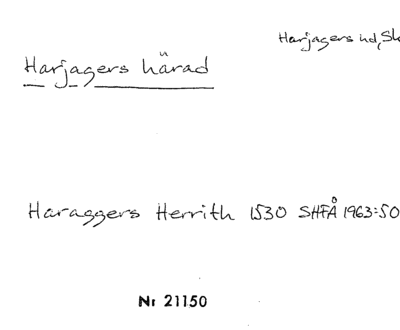 Harjagers hd, Sk
Harjagers härad
Haraggers Herrith 1530 SHFÅ 1963:50
Nr 21150